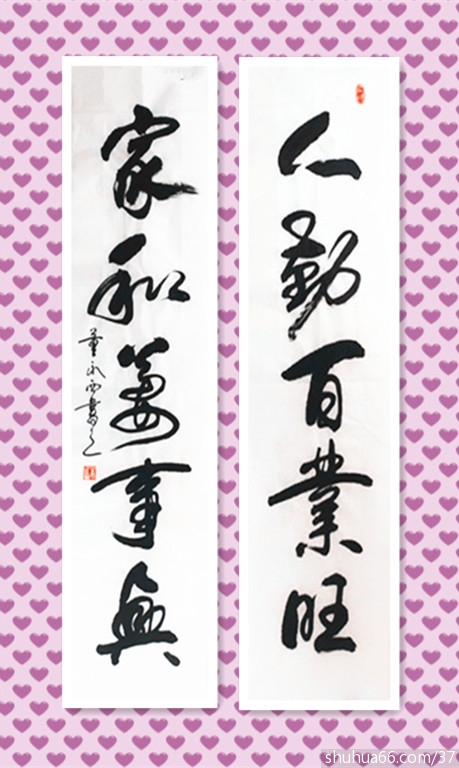 人勤百業旺
家和萬事興
董永西書之
shuhua66.com/37